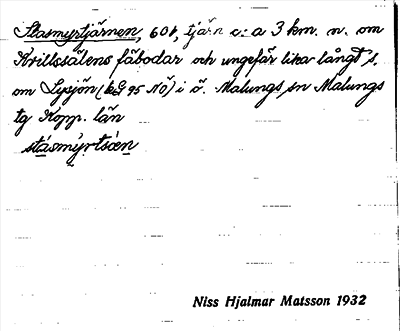 Stasmyrtjärnen, 601, tjärn c:a 3 km. n. om
Krillssälens fäbodar och ungefär lika långt s.
om Lysjön (bG 95 NÖ) i ö. Malungs sn Malungs
tg Kopp. län
stásmýrtsæ̀n
Niss Hjalmar Matsson 1932